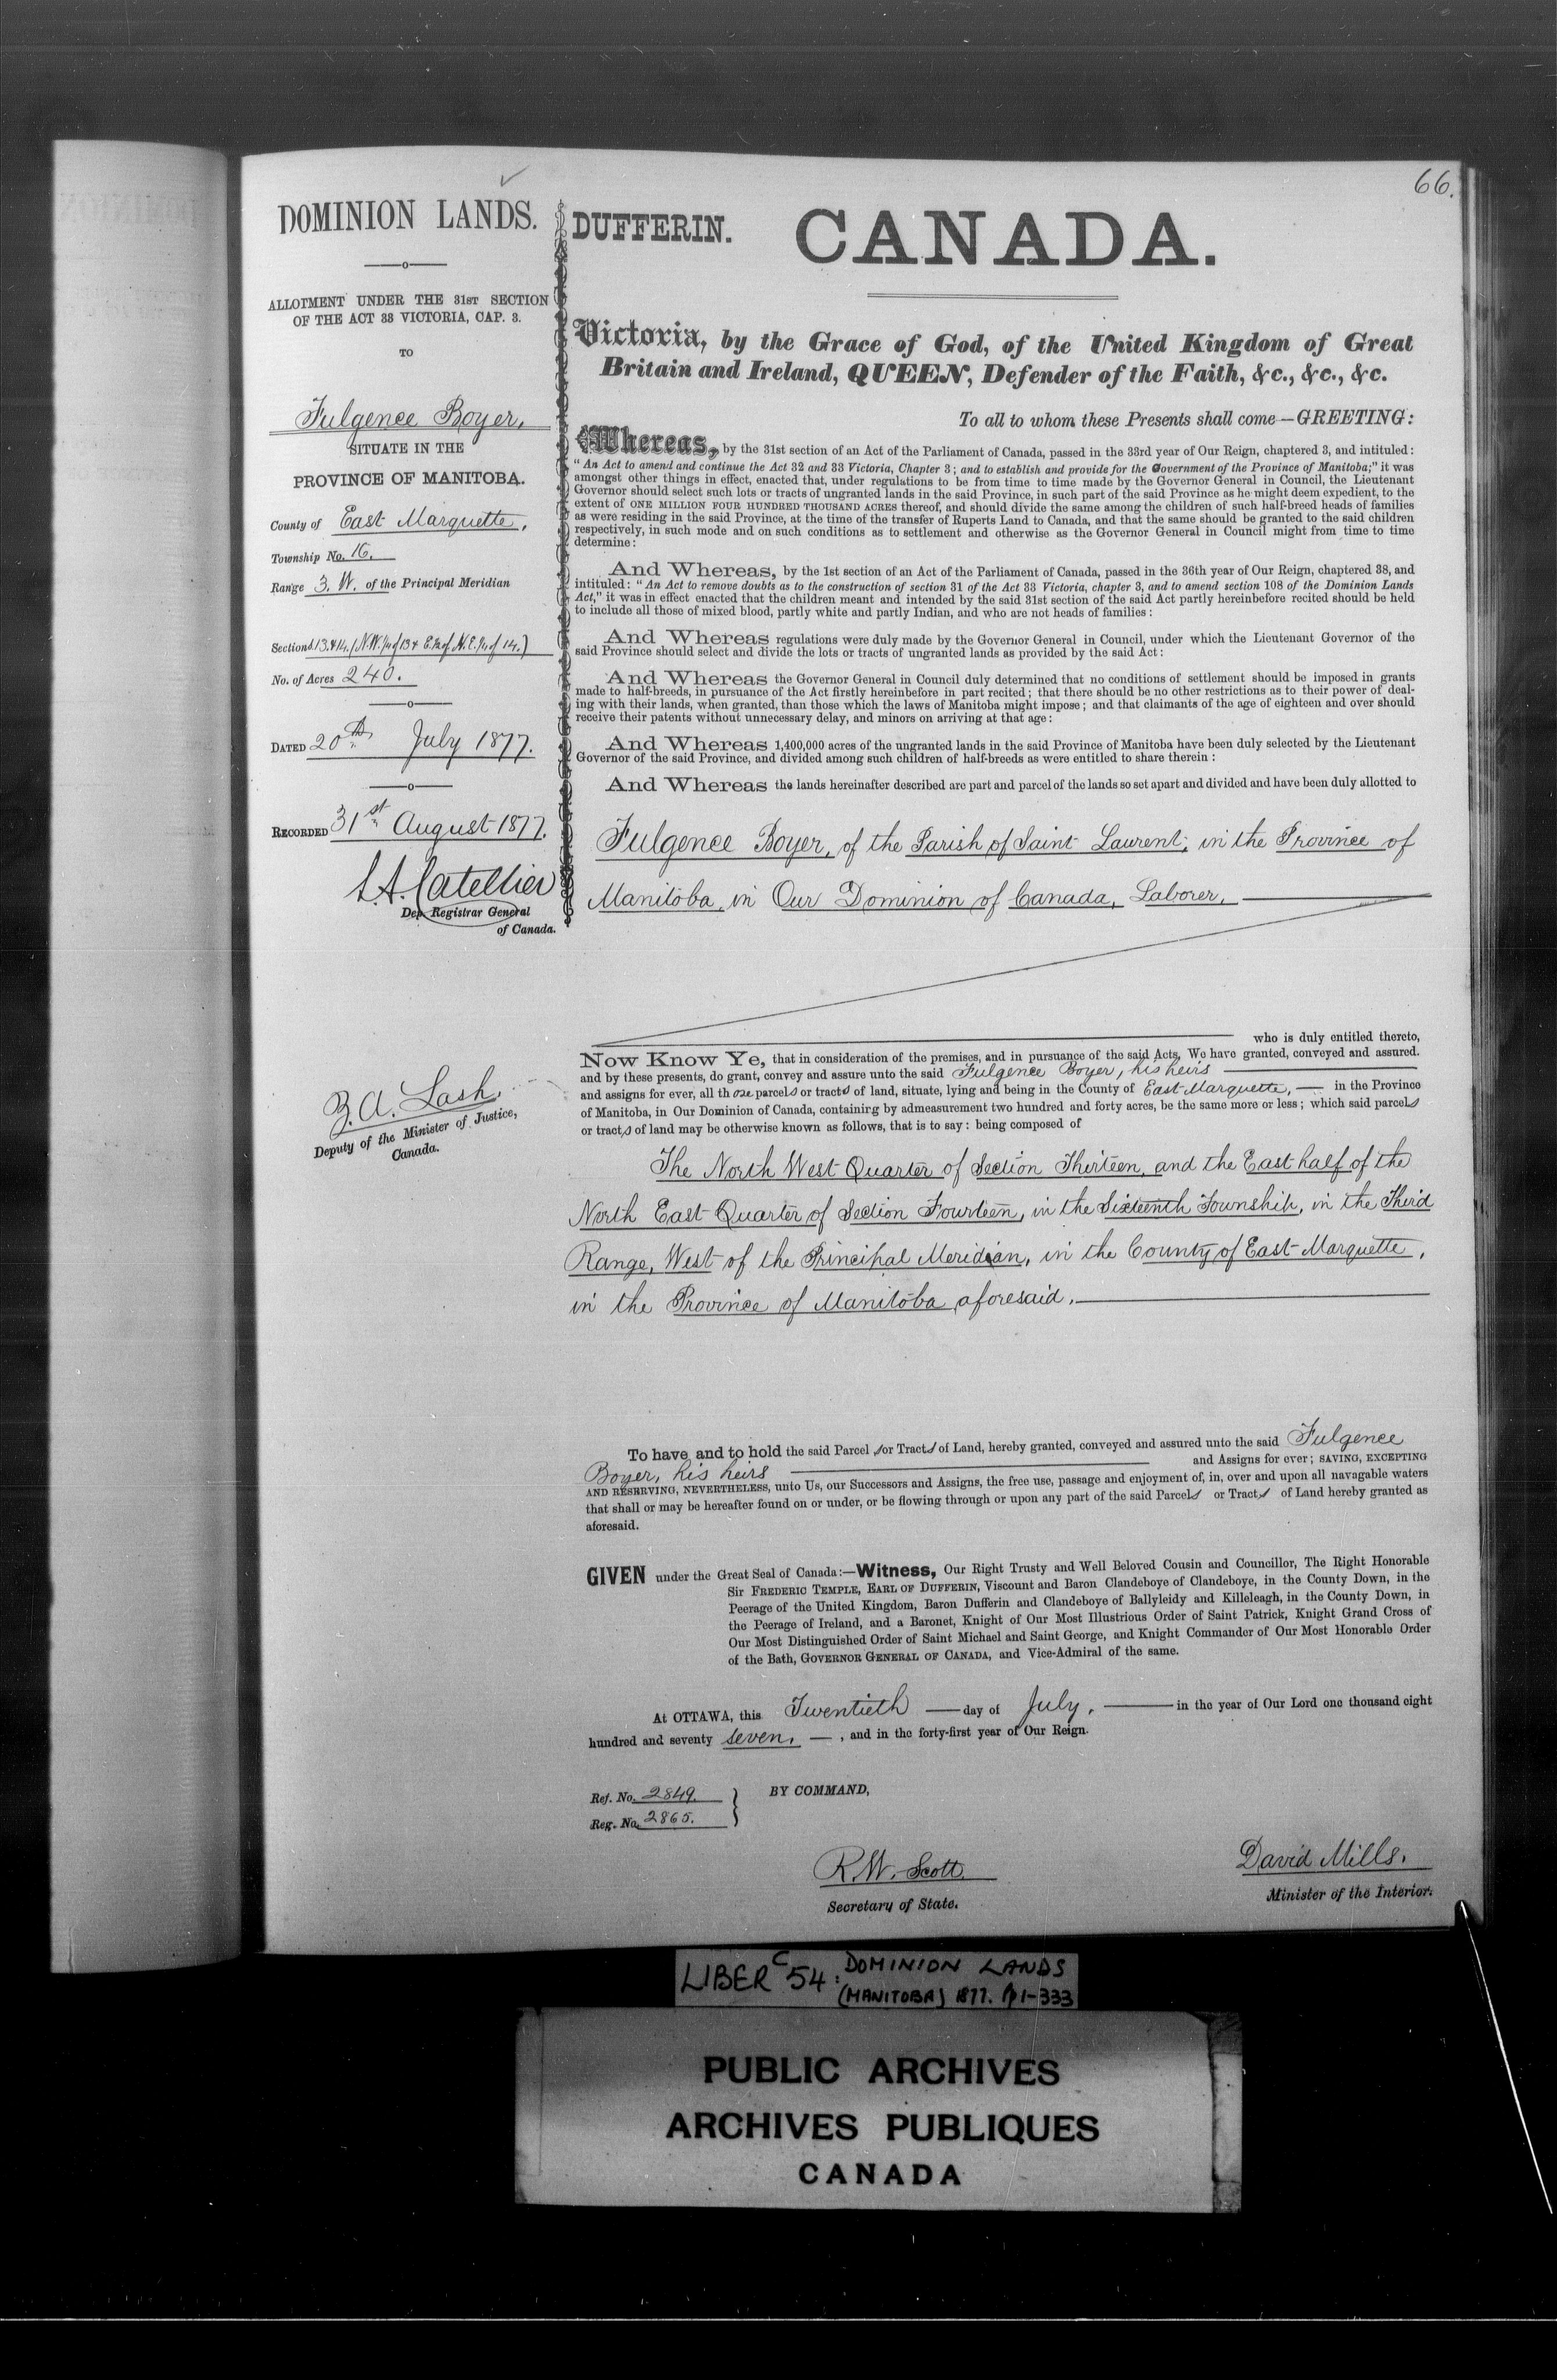 66.
DOMINION LANDS.
ALLOTMENT UNDER THE 31ST SECTION
OF THE ACT 33 VICTORIA, CAP. 3.
TO
Fulgence Boyer,
SITUATE IN THE
PROVINCE OF MANITOBA.
County of East Marquette,
Township No. 16.
Range 3. W. of the Principal Meridian
Sections 13 & 14. (N.W. ¼ of 13 & E. ½ of N.E. ¼ of 14.)
No. of Acres 240.
DATED 20th July 1877.
RECORDED 31st August 1877.
L.A. Catellier
Dep. Registrar General
of Canada.
Z.A. Lash.
Deputy of the Minister of Justice,
Canada.
DUFFERIN. CANADA.
Victoria, by the Grace of God, of the United Kingdom of Great
Britain and Ireland, QUEEN, Defender of the Faith, &c., &c., &c.
To all to whom these Presents shall come—GREETING:
Whereas, by the 31st section of an Act of the Parliament of Canada, passed in the 33rd year of Our Reign, chaptered 3, and intituled:
"An Act to amend and continue the Act 32 and 33 Victoria, Chapter 3; and to establish and provide for the Government of the Province of Manitoba;" it was
amongst other things in effect, enacted that, under regulations to be from time to time made by the Governor General in Council, the Lieutenant
Governor should select such lots or tracts of ungranted lands in the said Province, in such part of the said Province as he might deem expedient, to the
extent of ONE MILLION FOUR HUNDRED THOUSAND ACRES thereof, and should divide the same among the children of such half-breed heads of families
as were residing in the said Province, at the time of the transfer of Ruperts Land to Canada, and that the same should be granted to the said children
respectively, in such mode and on such conditions as to settlement and otherwise as the Governor General in Council might from time to time
determine:
And Whereas, by the 1st section of an Act of the Parliament of Canada, passed in the 36th year of Our Reign, chaptered 38, and
intituled: "An Act to remove doubts as to the construction of section 31 of the Act 33 Victoria, chapter 3, and to amend section 108 of the Dominion Lands
Act," it was in effect enacted that the children meant and intended by the said 31st section of the said Act partly hereinbefore recited should be held
to include all those of mixed blood, partly white and partly Indian, and who are not heads of families:
And Whereas regulations were duly made by the Governor General in Council, under which the Lieutenant Governor of the
said Province should select and divide the lots or tracts of ungranted lands as provided by the said Act:
And Whereas the Governor General in Council duly determined that no conditions of settlement should be imposed in grants
made to half-breeds, in pursuance of the Act firstly hereinbefore in part recited; that there should be no other restrictions as to their power of deal-
ing with their lands, when granted, than those which the laws of Manitoba might impose; and that claimants of the age of eighteen and over should
receive their patents without unnecessary delay, and minors on arriving at that age:
And Whereas 1,400,000 acres of the ungranted lands in the said Province of Manitoba have been duly selected by the Lieutenant
Governor of the said Province, and divided among such children of half-breeds as were entitled to share therein:
And Whereas the lands hereinafter described are part and parcel of the lands so set apart and divided and have been duly allotted to
Fulgence Boyer, of the Parish of Saint Laurent, in the Province of
Manitoba, in Our Dominion of Canada, Laborer,
who is duly entitled thereto,
Now Know Ye, that in consideration of the premises, and in pursuance of the said Acts, We have granted, conveyed and assured.
and by these presents, do grant, convey and assure unto the said Fulgence Boyer, his heirs
and assigns for ever, all those parcels or tracts of land, situate, lying and being in the County of East Marquette, in the Province
of Manitoba, in Our Dominion of Canada, containing by admeasurement two hundred and forty acres, be the same more or less; which said parcels
or tracts of land may be otherwise known as follows, that is to say: being composed of
The North West Quarter of Section Thirteen, and the East half of the
North East Quarter of Section Fourteen, in the Sixteenth Township, in the Third
Range, West of the Principal Meridian, in the County of East Marquette,
in the Province of Manitoba aforesaid.
To have and to hold the said Parcels or Tracts of Land, hereby granted, conveyed and assured unto the said Fulgence
Boyer, his heirs and Assigns for ever; SAVING, EXCEPTING
AND RESERVING, NEVERTHELESS, unto Us, our Successors and Assigns, the free use, passage and enjoyment of, in, over and upon all navagable waters
that shall or may be hereafter found on or under, or be flowing through or upon any part of the said Parcels or Tracts of Land hereby granted as
aforesaid.
GIVEN under the Great Seal of Canada:—Witness, Our Right Trusty and Well Beloved Cousin and Councillor, The Right Honorable
Sir FREDERIC TEMPLE, EARL OF DUFFERIN, Viscount and Baron Clandeboye of Clandeboye, in the County Down, in the
Peerage of the United Kingdom, Baron Dufferin and Clandeboye of Ballyleidy and Killeleagh, in the County Down, in
the Peerage of Ireland, and a Baronet, Knight of Our Most Illustrious Order of Saint Patrick, Knight Grand Cross of
Our Most Distinguished Order of Saint Michael and Saint George, and Knight Commander of Our Most Honorable Order
of the Bath, GOVERNOR GENERAL OF CANADA, and Vice-Admiral of the same.
At OTTAWA, this Twentieth day of July, in the year of Our Lord one thousand eight
hundred and seventy seven, , and in the forty-first year of Our Reign.
Ref. No. 2849.
Reg. No. 2865.
BY COMMAND,
R.W. Scott
Secretary of State.
David Mills.
Minister of the Interior.
LIBER C 54: DOMINION LANDS
(MANITOBA) 1877. pp 1-333
PUBLIC ARCHIVES
ARCHIVES PUBLIQUES
CANADA